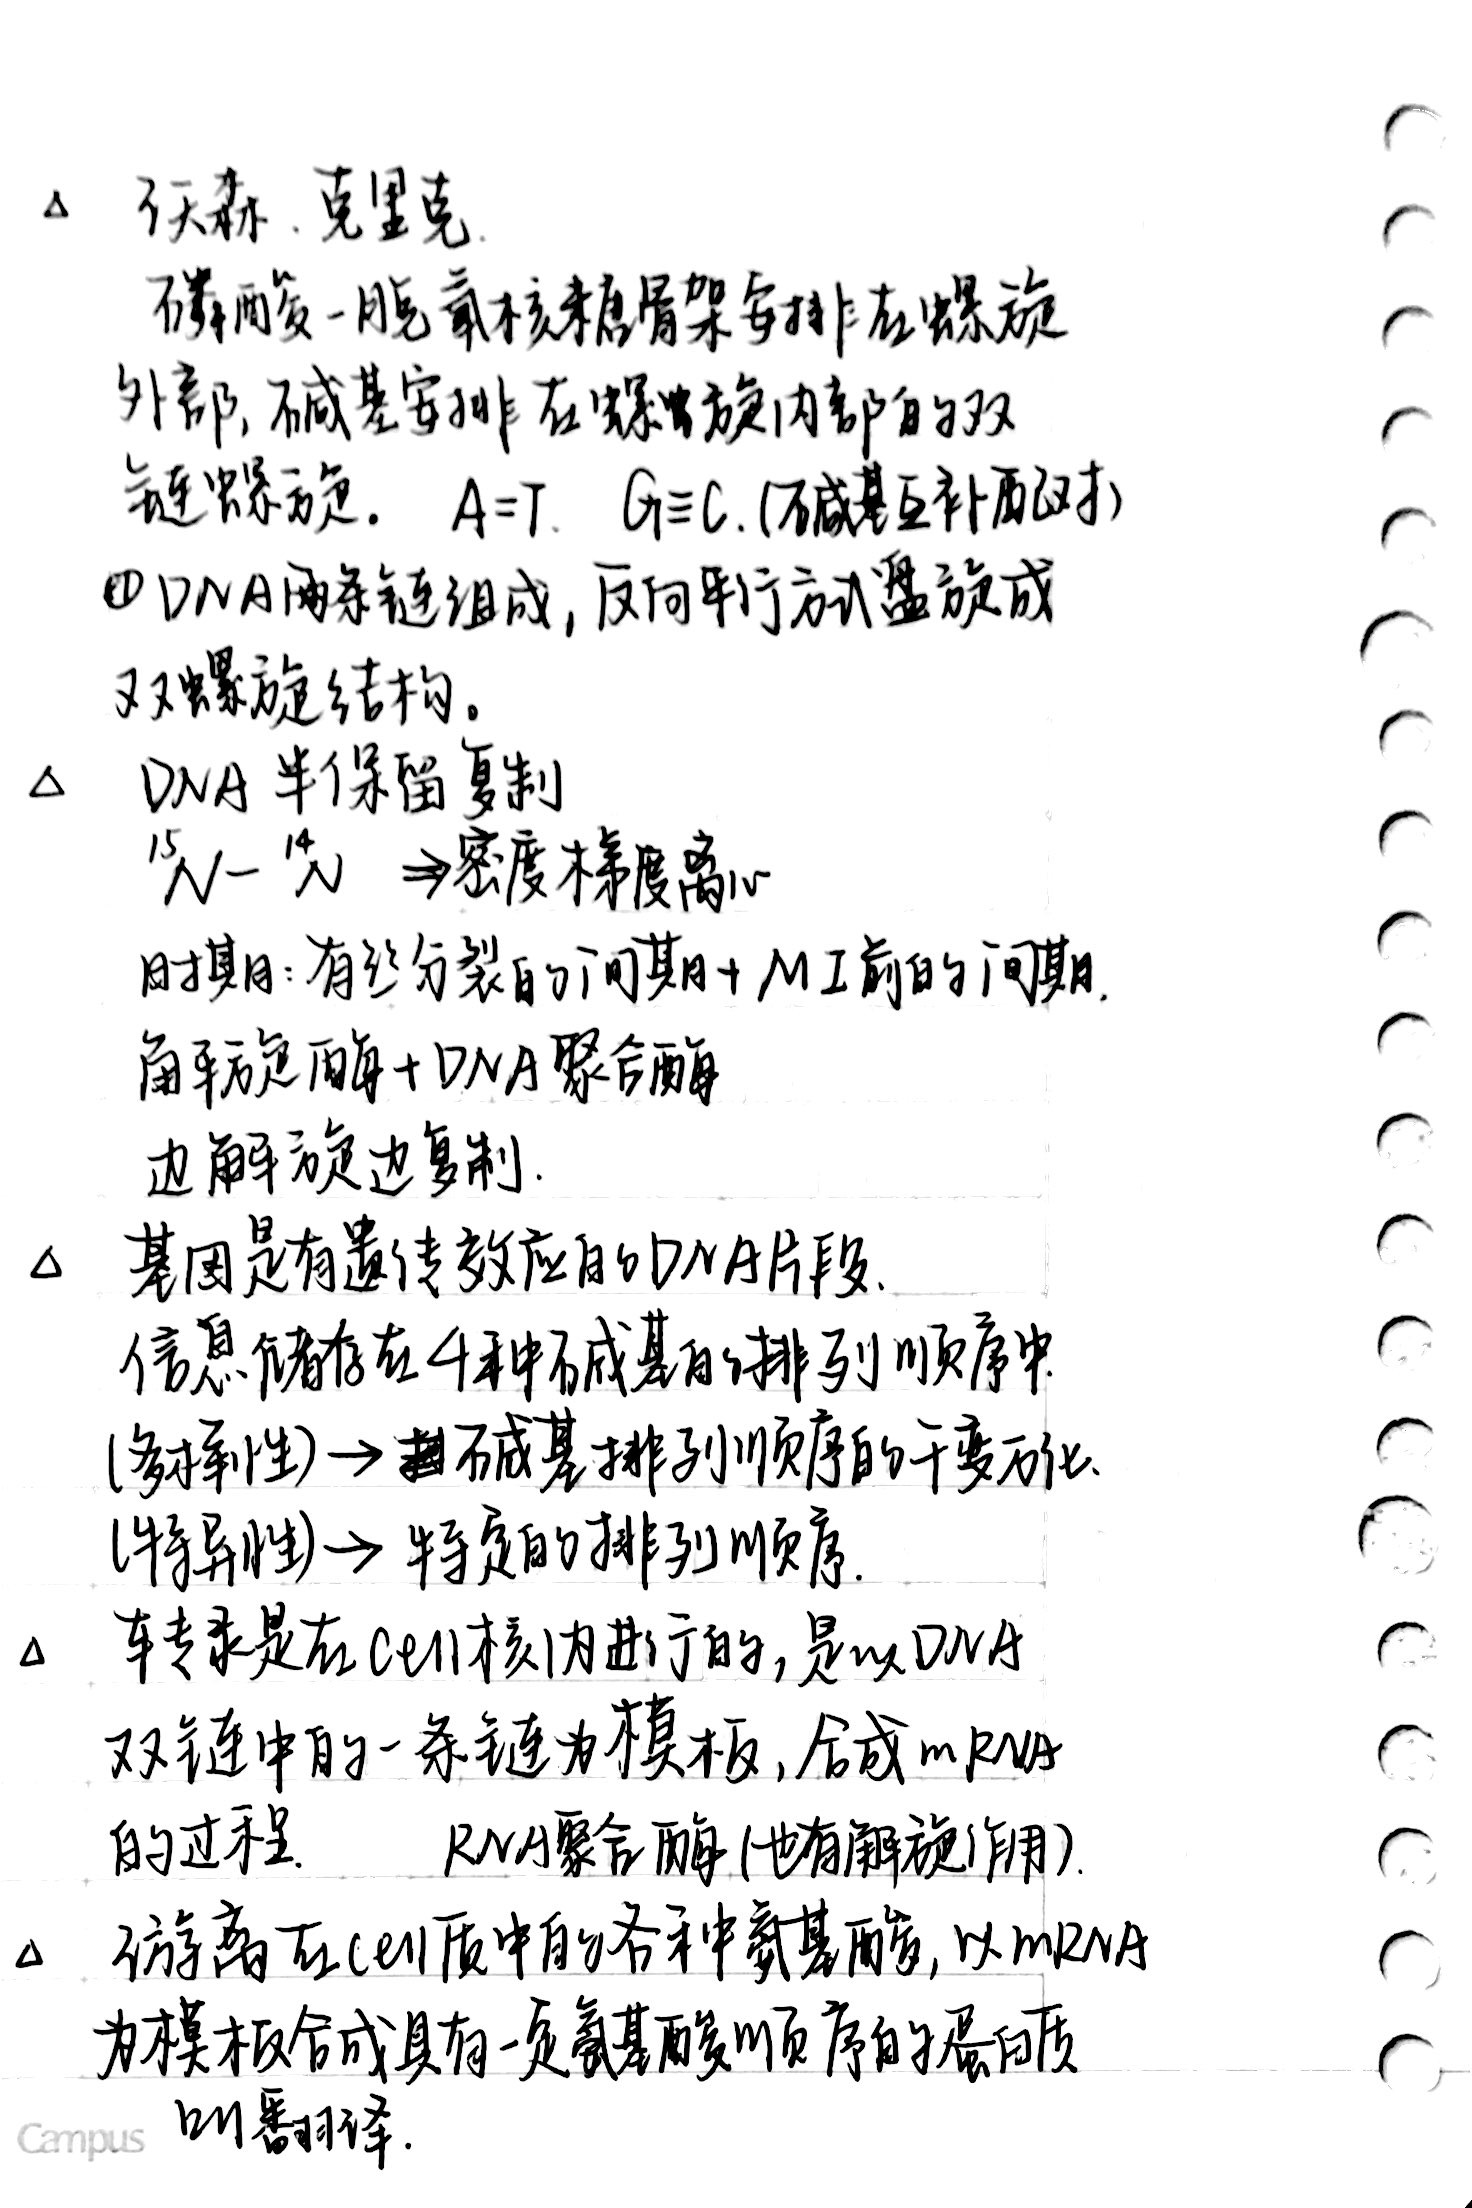 △ 沃森、克里克.
磷酸-脱氧核糖骨架安排在螺旋
外部,碱基安排在螺旋内部的双
链螺旋。 A=T. G≡C.(碱基互补配对)
① DNA两条链组成,反向平行方式盘旋成
双螺旋结构。
△ DNA 半保留复制
¹⁵N-¹⁴N ⇒密度梯度离心
时期:有丝分裂的间期+MⅠ前的间期.
解旋酶+DNA聚合酶
边解旋边复制.
△ 基因是有遗传效应的DNA片段.
信息储存在4种碱基的排列顺序中.
(多样性)→碱基排列顺序的千变万化.
(特异性)→特定的排列顺序.
△ 转录是在cell核内进行的,是以DNA
双链中的一条链为模板,合成mRNA
的过程. RNA聚合酶(也有解旋作用).
△ 游离在cell质中的各种氨基酸,以mRNA
为模板合成具有一定氨基酸顺序的蛋白质
叫翻译.
Campus